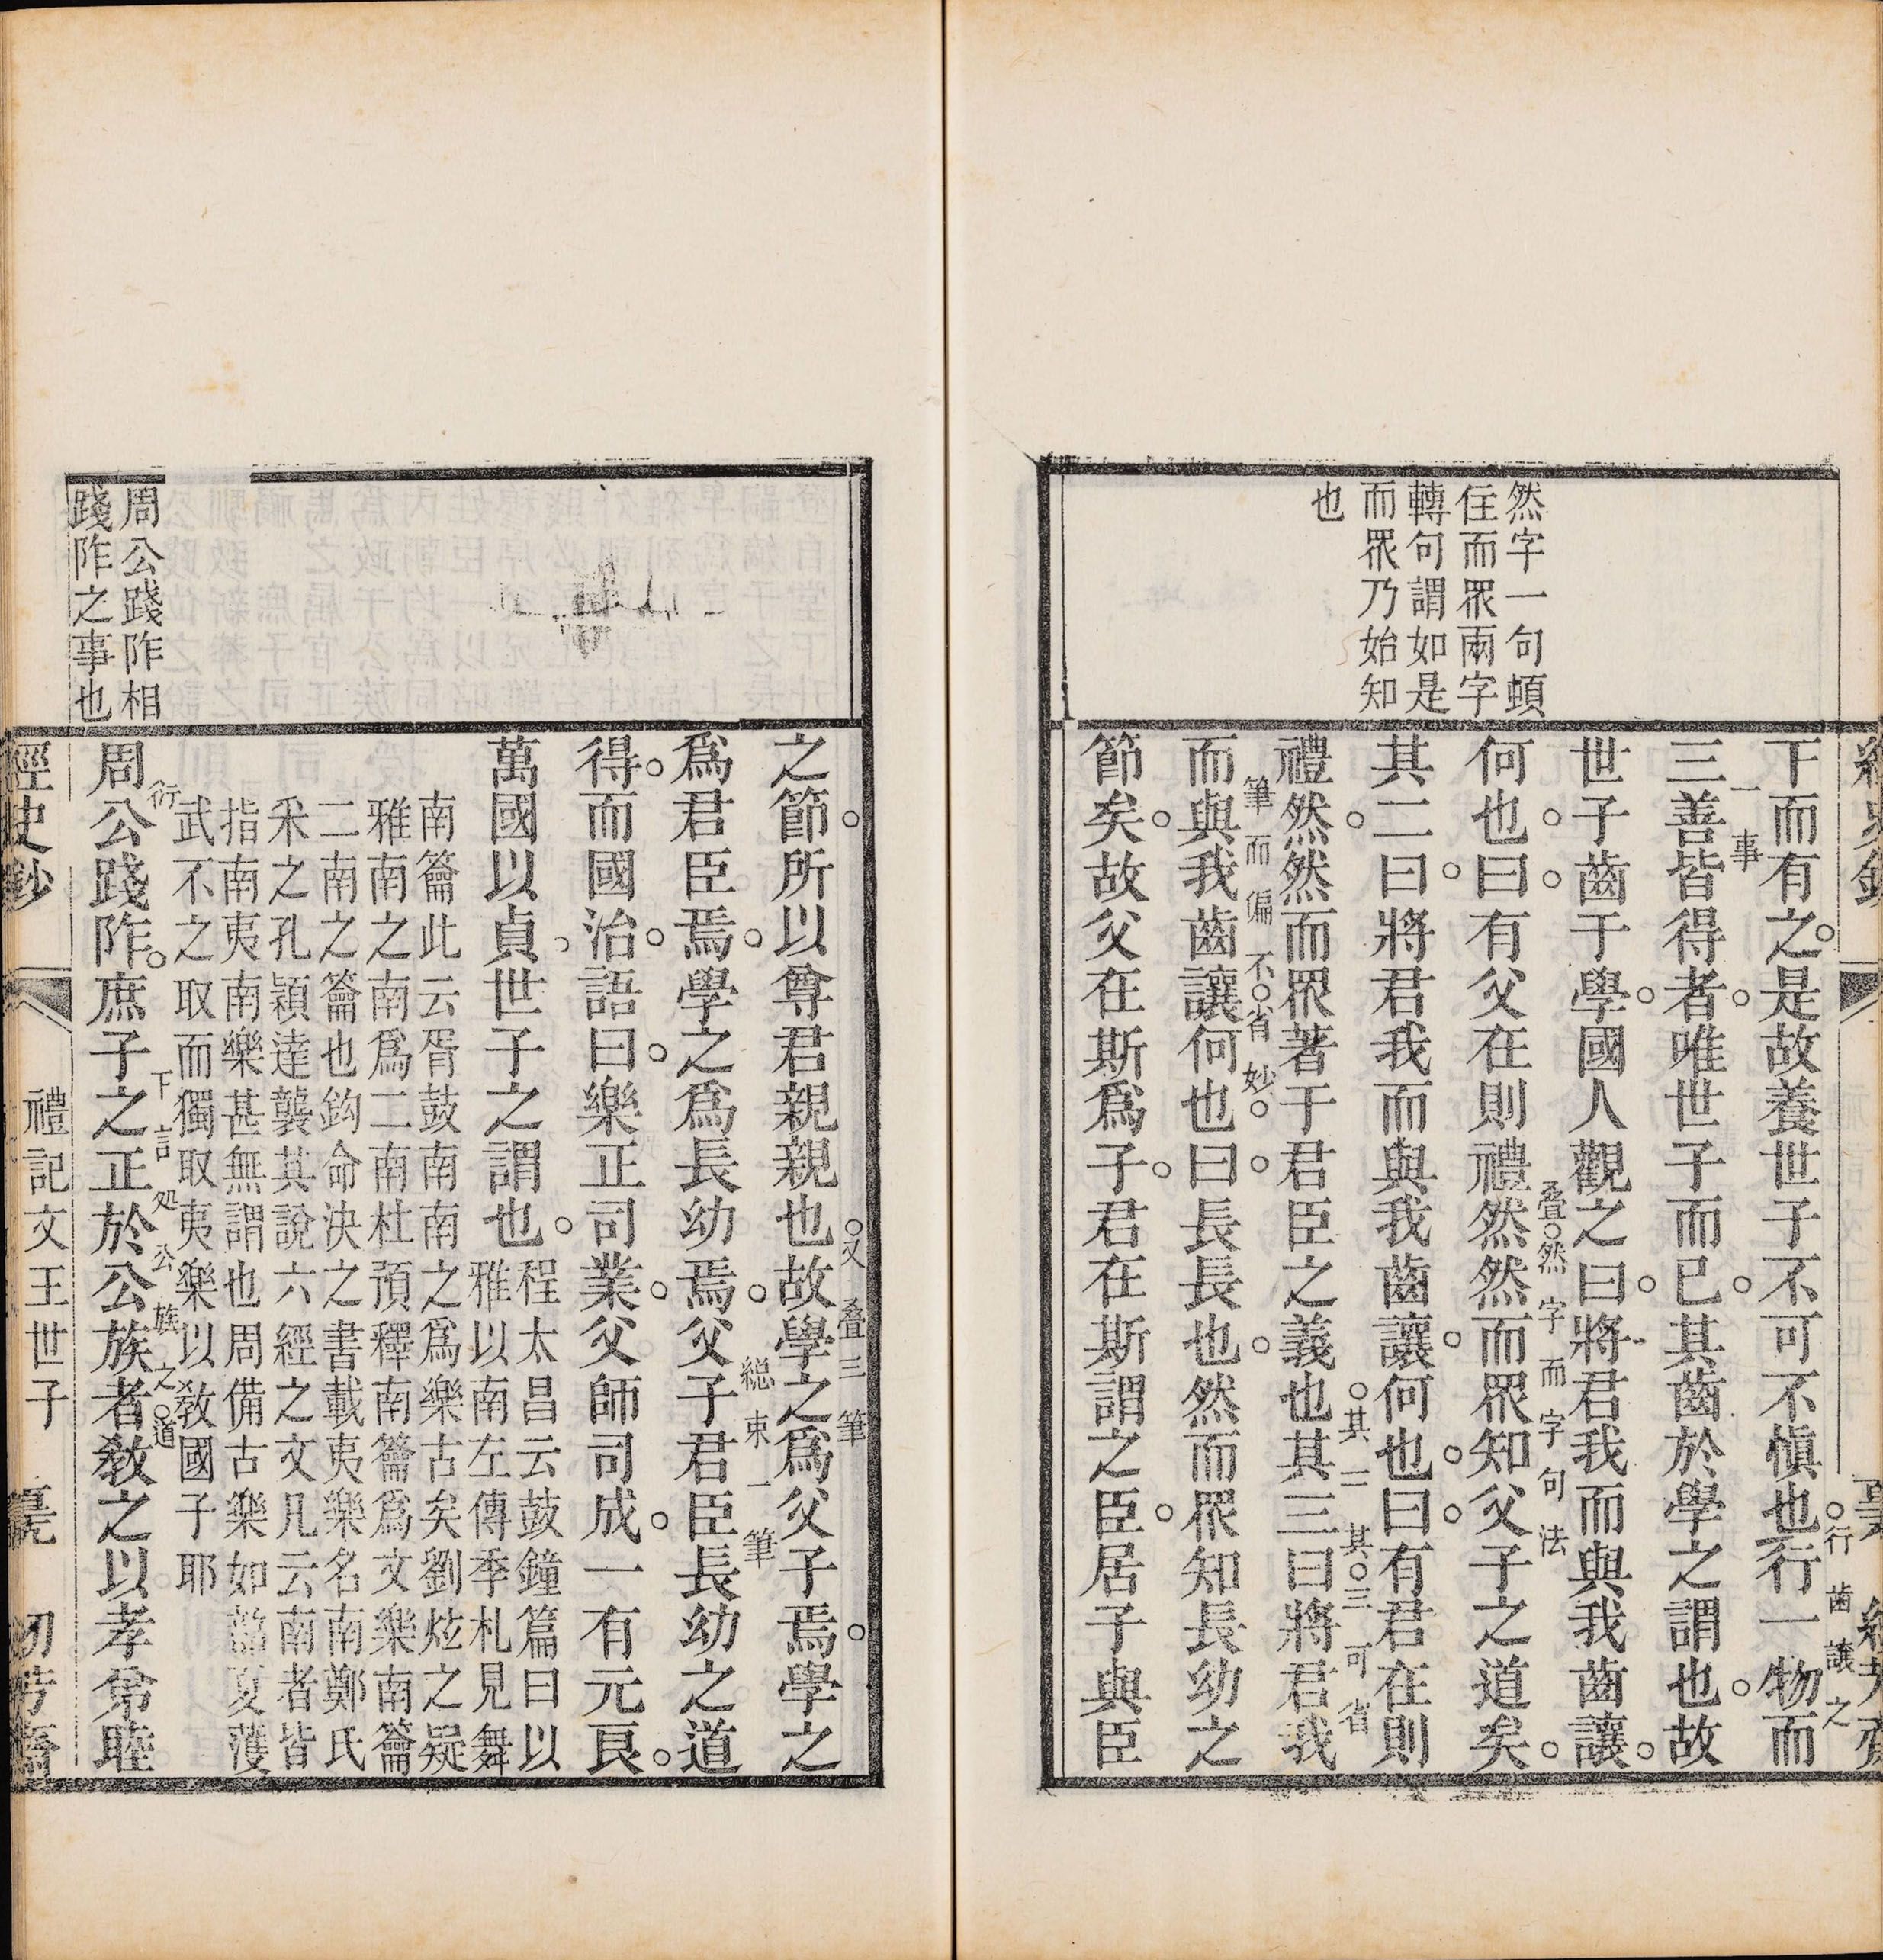 然字一句頓
住而眾兩字
轉句謂如是
而眾乃始知
也
下而有之是故養世子不可不慎也行一物而
行齒讓之
一事
三善皆得者唯世子而已其齒於學之謂也故
世子齒于學國人觀之曰將君我而與我齒讓
何也曰有父在則禮然然而眾知父子之道矣
叠然字而字句法
其二曰將君我而與我齒讓何也曰有君在則
其二其三可省
禮然然而眾著于君臣之義也其三曰將君我
筆而偏不省妙
而與我齒讓何也曰長長也然而眾知長幼之
節矣故父在斯為子君在斯謂之臣居子與臣
之節所以尊君親親也故學之為父子焉學之
又叠三筆
為君臣焉學之為長幼焉父子君臣長幼之道
總束一筆
得而國治語曰樂正司業父師司成一有元良
萬國以貞世子之謂也
程太昌云鼓鐘篇曰以
雅以南左傳季札見舞
南籥此云胥鼓南南之為樂古矣劉炫之疑
雅南之南為二南杜預釋南籥為文樂南籥
二南之籥也鈎命決之書載夷樂名南鄭氏
釆之孔穎達襲其說六經之文凡云南者皆
指南夷南樂甚無謂也周備古樂如韶夏濩
武不之取而獨取夷樂以教國子耶
衍
下言処公族之道
周公踐阼庶子之正於公族者教之以孝弟睦
周公踐阼相
踐阼之事也
經史鈔
禮記文王世子